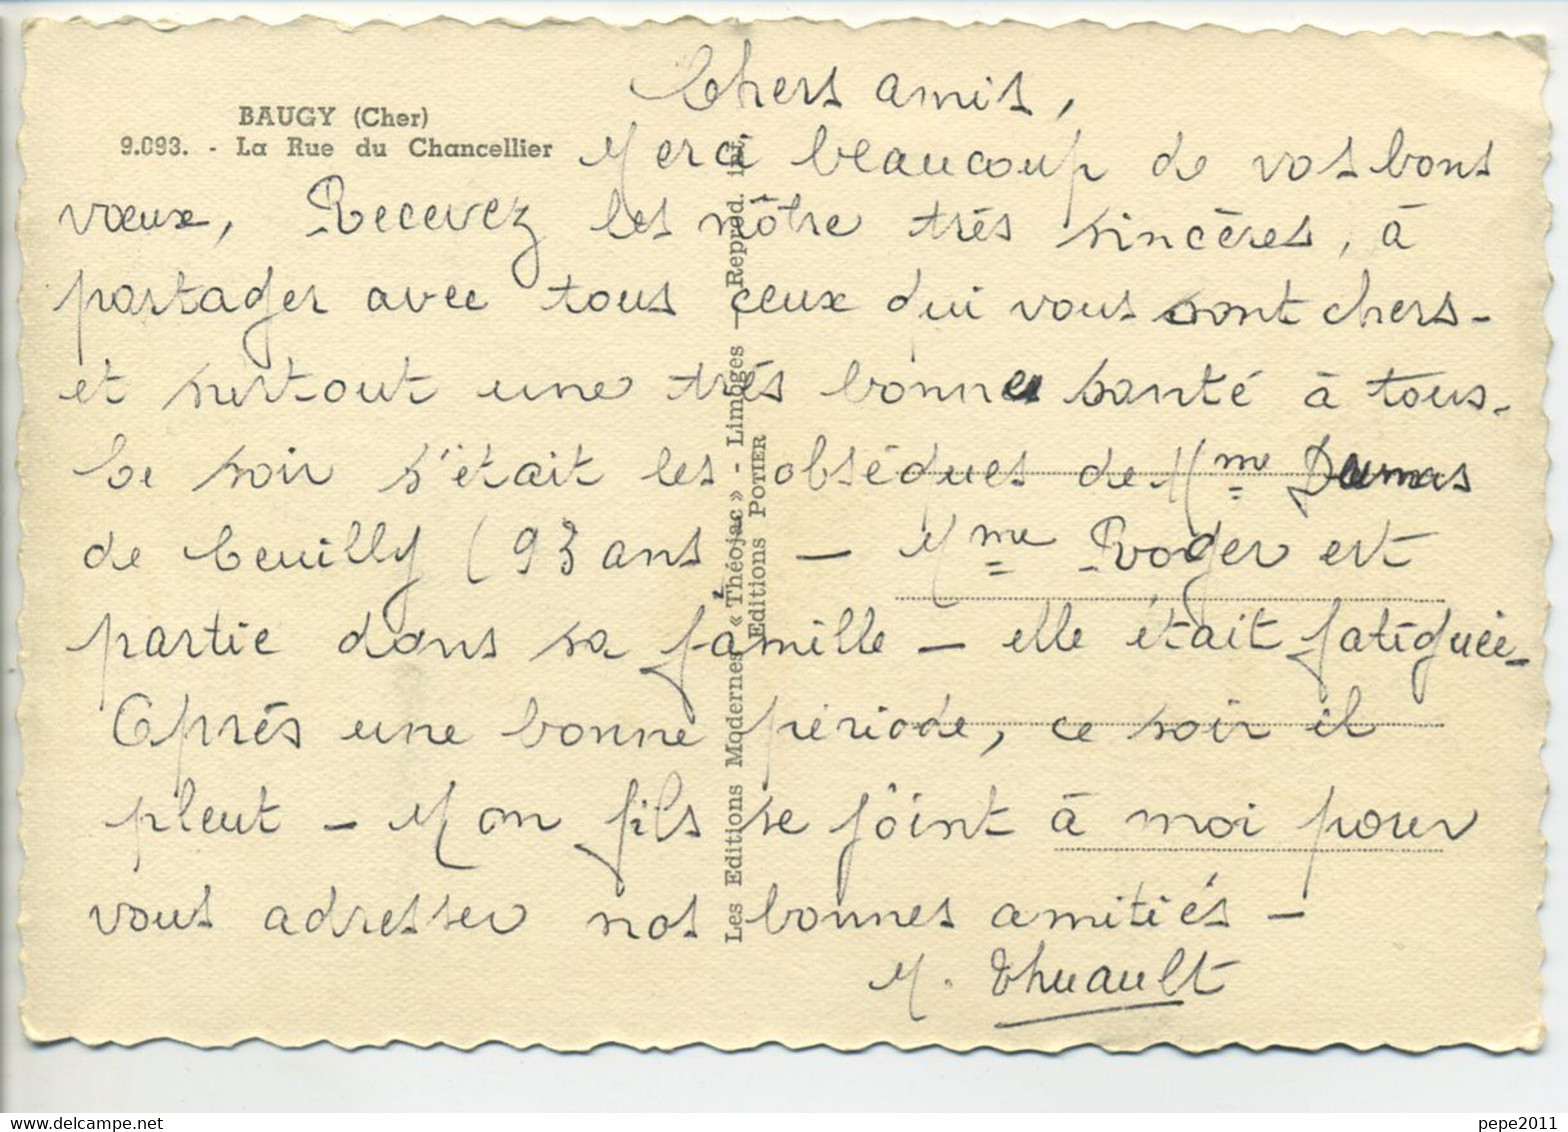 BAUGY (Cher)
9.093. - La Rue du Chancellier
Chers amis,
Merci beaucoup de vos bons
vœux, Recevez les nôtre très sincères, à
partager avec tous ceux qui vous sont chers -
et surtout une très bonne santé à tous -
Ce soir s'était les obsèques de Mme Dumas
de Ceuilly (93 ans — Mme Roger est
partie dans sa famille — elle était fatiguée -
Après une bonne période, ce soir il
pleut - Mon fils se joint à moi pour
vous adresser nos bonnes amitiés -
M. Thuault
Les Editions Modernes « Théojac » - Limoges - Reprod. int.
Editions POTIER
pepe2011